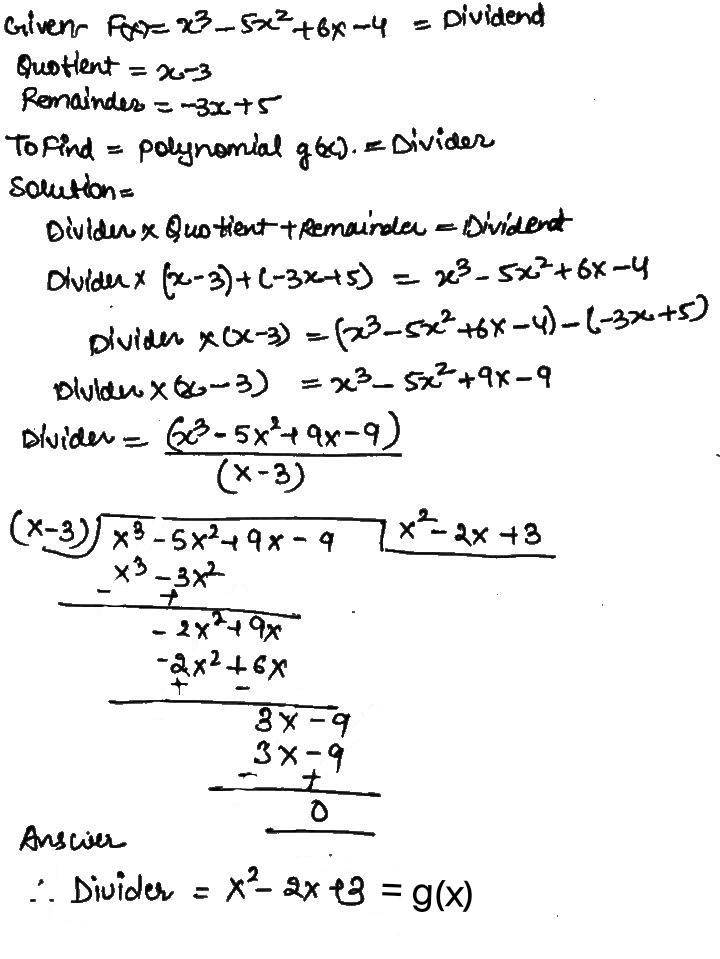 Given F(x)= x³-5x²+6x-4 = Dividend
Quotient = x-3
Remainder = -3x+5
To Find = polynomial g(x). = Divider
Solution =
Divider x Quotient + Remainder = Dividend
Divider x (x-3)+(-3x+5) = x³-5x²+6x-4
Divider x (x-3) = (x³-5x²+6x-4)-(-3x+5)
Divider x (x-3) = x³-5x²+9x-9
Divider = (x³-5x²+9x-9)
(x-3)
(x-3)) x³-5x²+9x-9 x²-2x+3
x³-3x²
- +
-2x²+9x
-2x²+6x
+ -
3x-9
3x-9
- +
0
Answer
∴ Divider = x²-2x+3 = g(x)